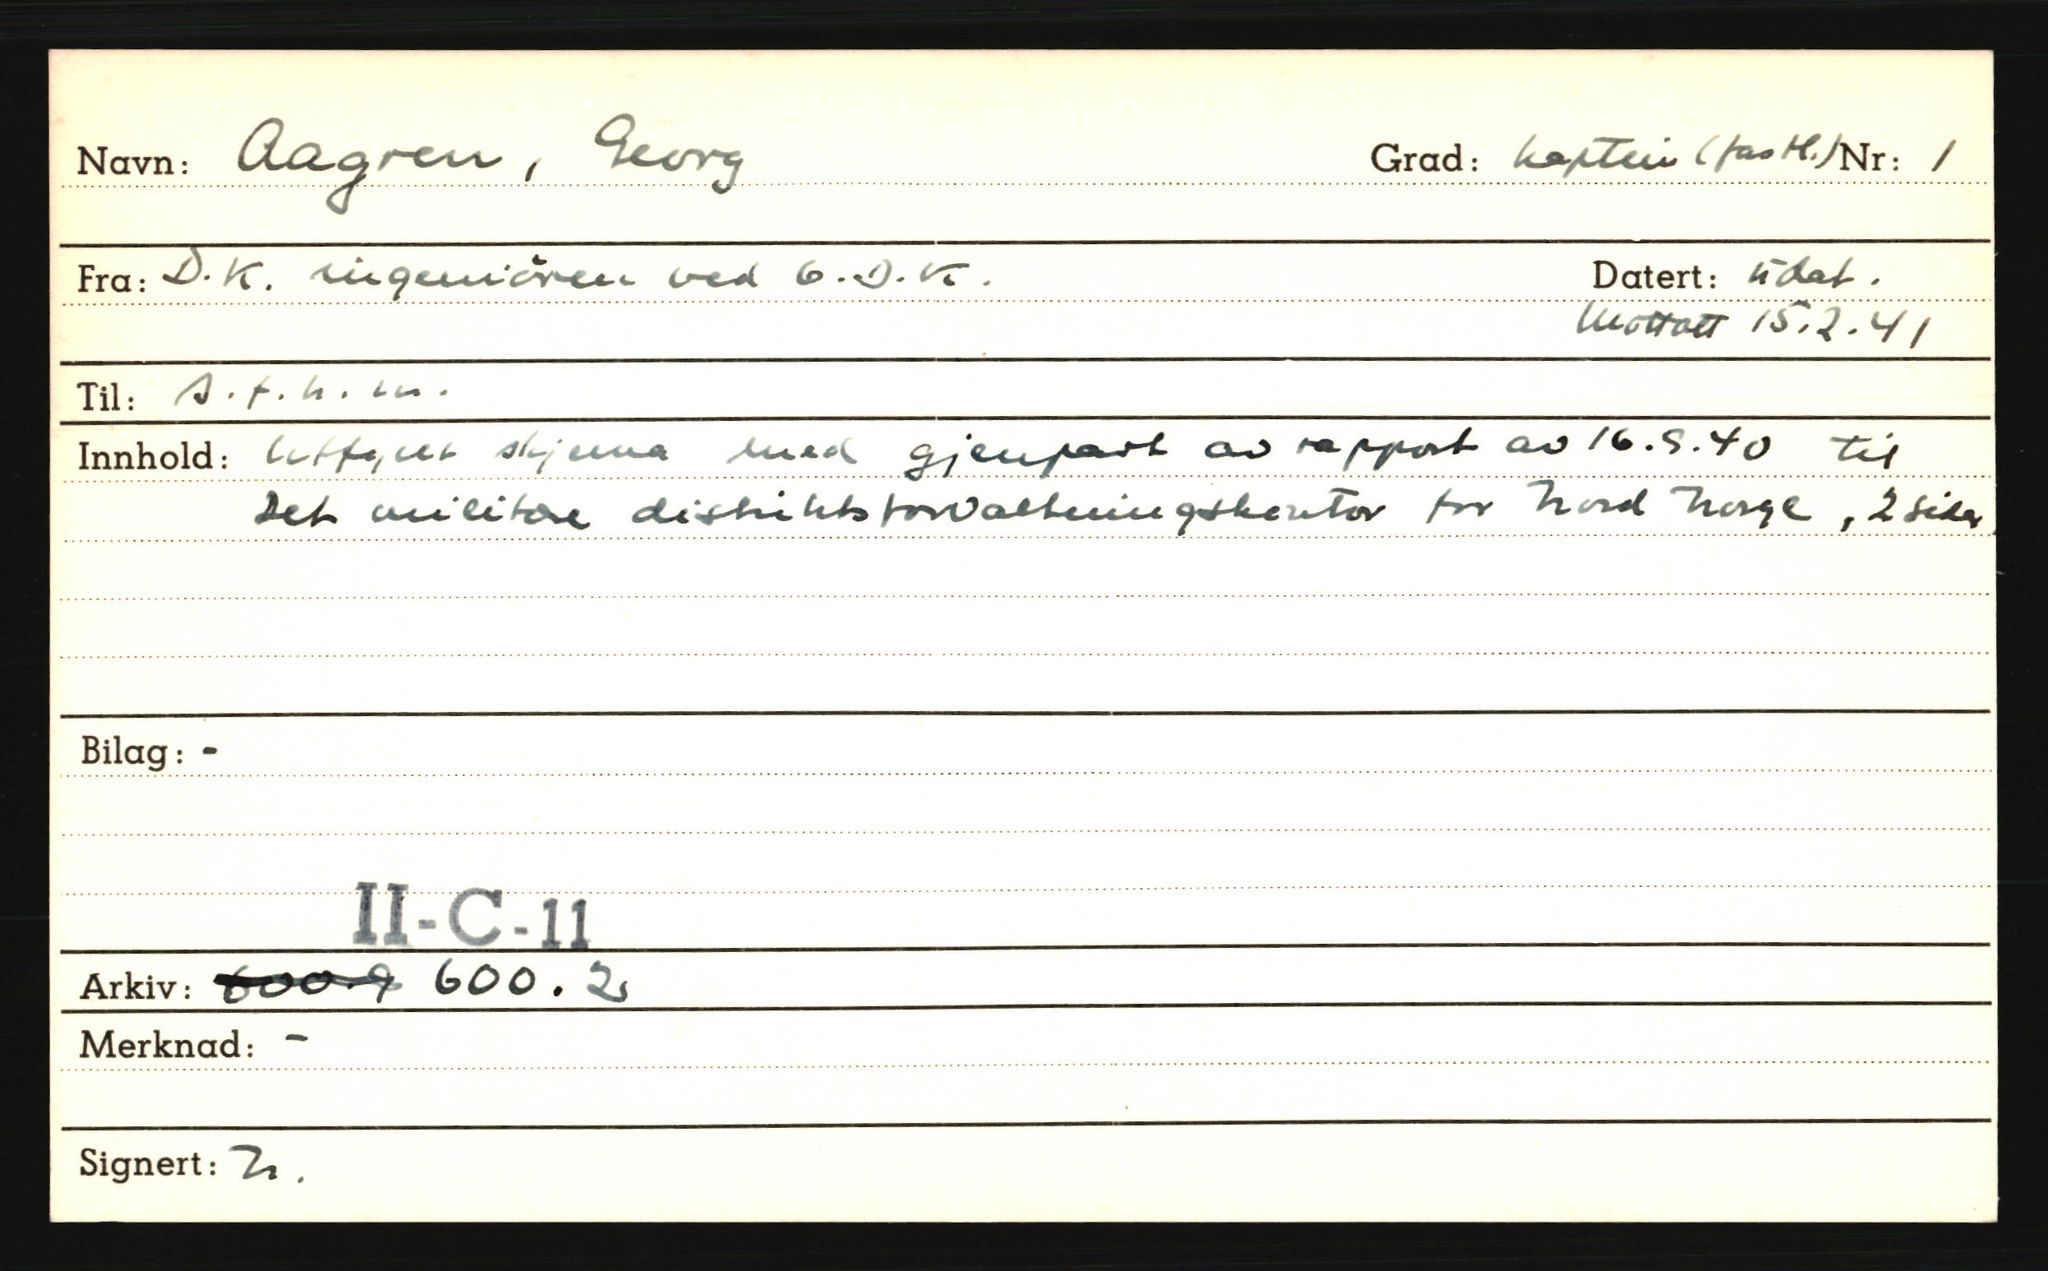 Navn: Aagren, Georg Grad: kaptein (fastl.) Nr: 1
Fra: D.K. ingeniören ved 6.D.K. Datert: udat.
Mottatt 15.2.41
Til: s.f.h.m.
Innhold: Utfyllt skjema med gjenpart av rapport av 16.9.40 til
Det militære distriktsforvaltningskontor for Nord Norge, 2 sider
Bilag: -
II-C-11
Arkiv: 600.9 600.2
Merknad: -
Signert: N.